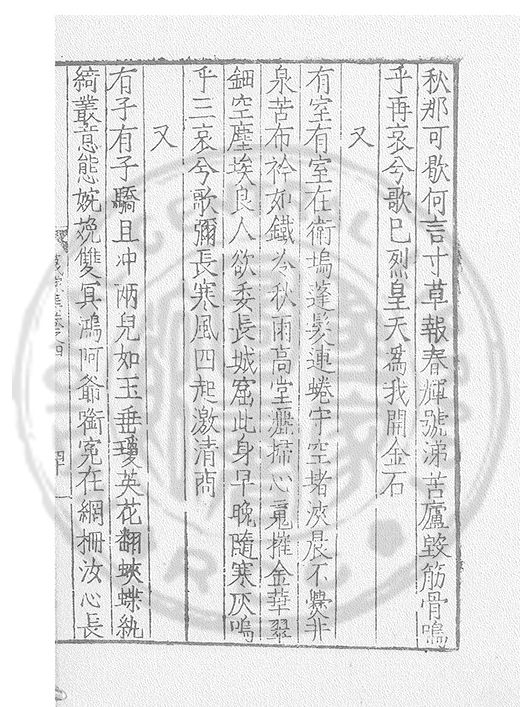 秋那可歇何言寸草報春輝號涕苦廬毀筋骨嗚
乎再哀兮歌已烈皇天為我開金石
又
有室有室在衛塢蓬髮連蜷守空堵浹晨不爨非
泉苦布衿如鐵冷秋雨高堂瀝掃心竟摧金華翠
鈿空塵埃良人欲委長城窟此身早晚隨寒灰嗚
乎三哀兮歌彌長寒風四起激清商
又
有子有子驕且冲兩兒如玉垂瓊英花翻蛺蝶紈
綺叢意態婉娩雙冥鴻阿爺銜冤在網柵汝心長